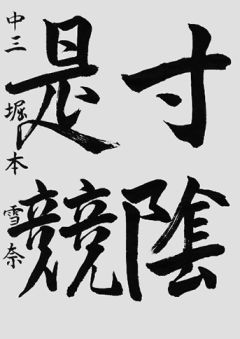 寸陰
是競
中三 堀本 雪奈